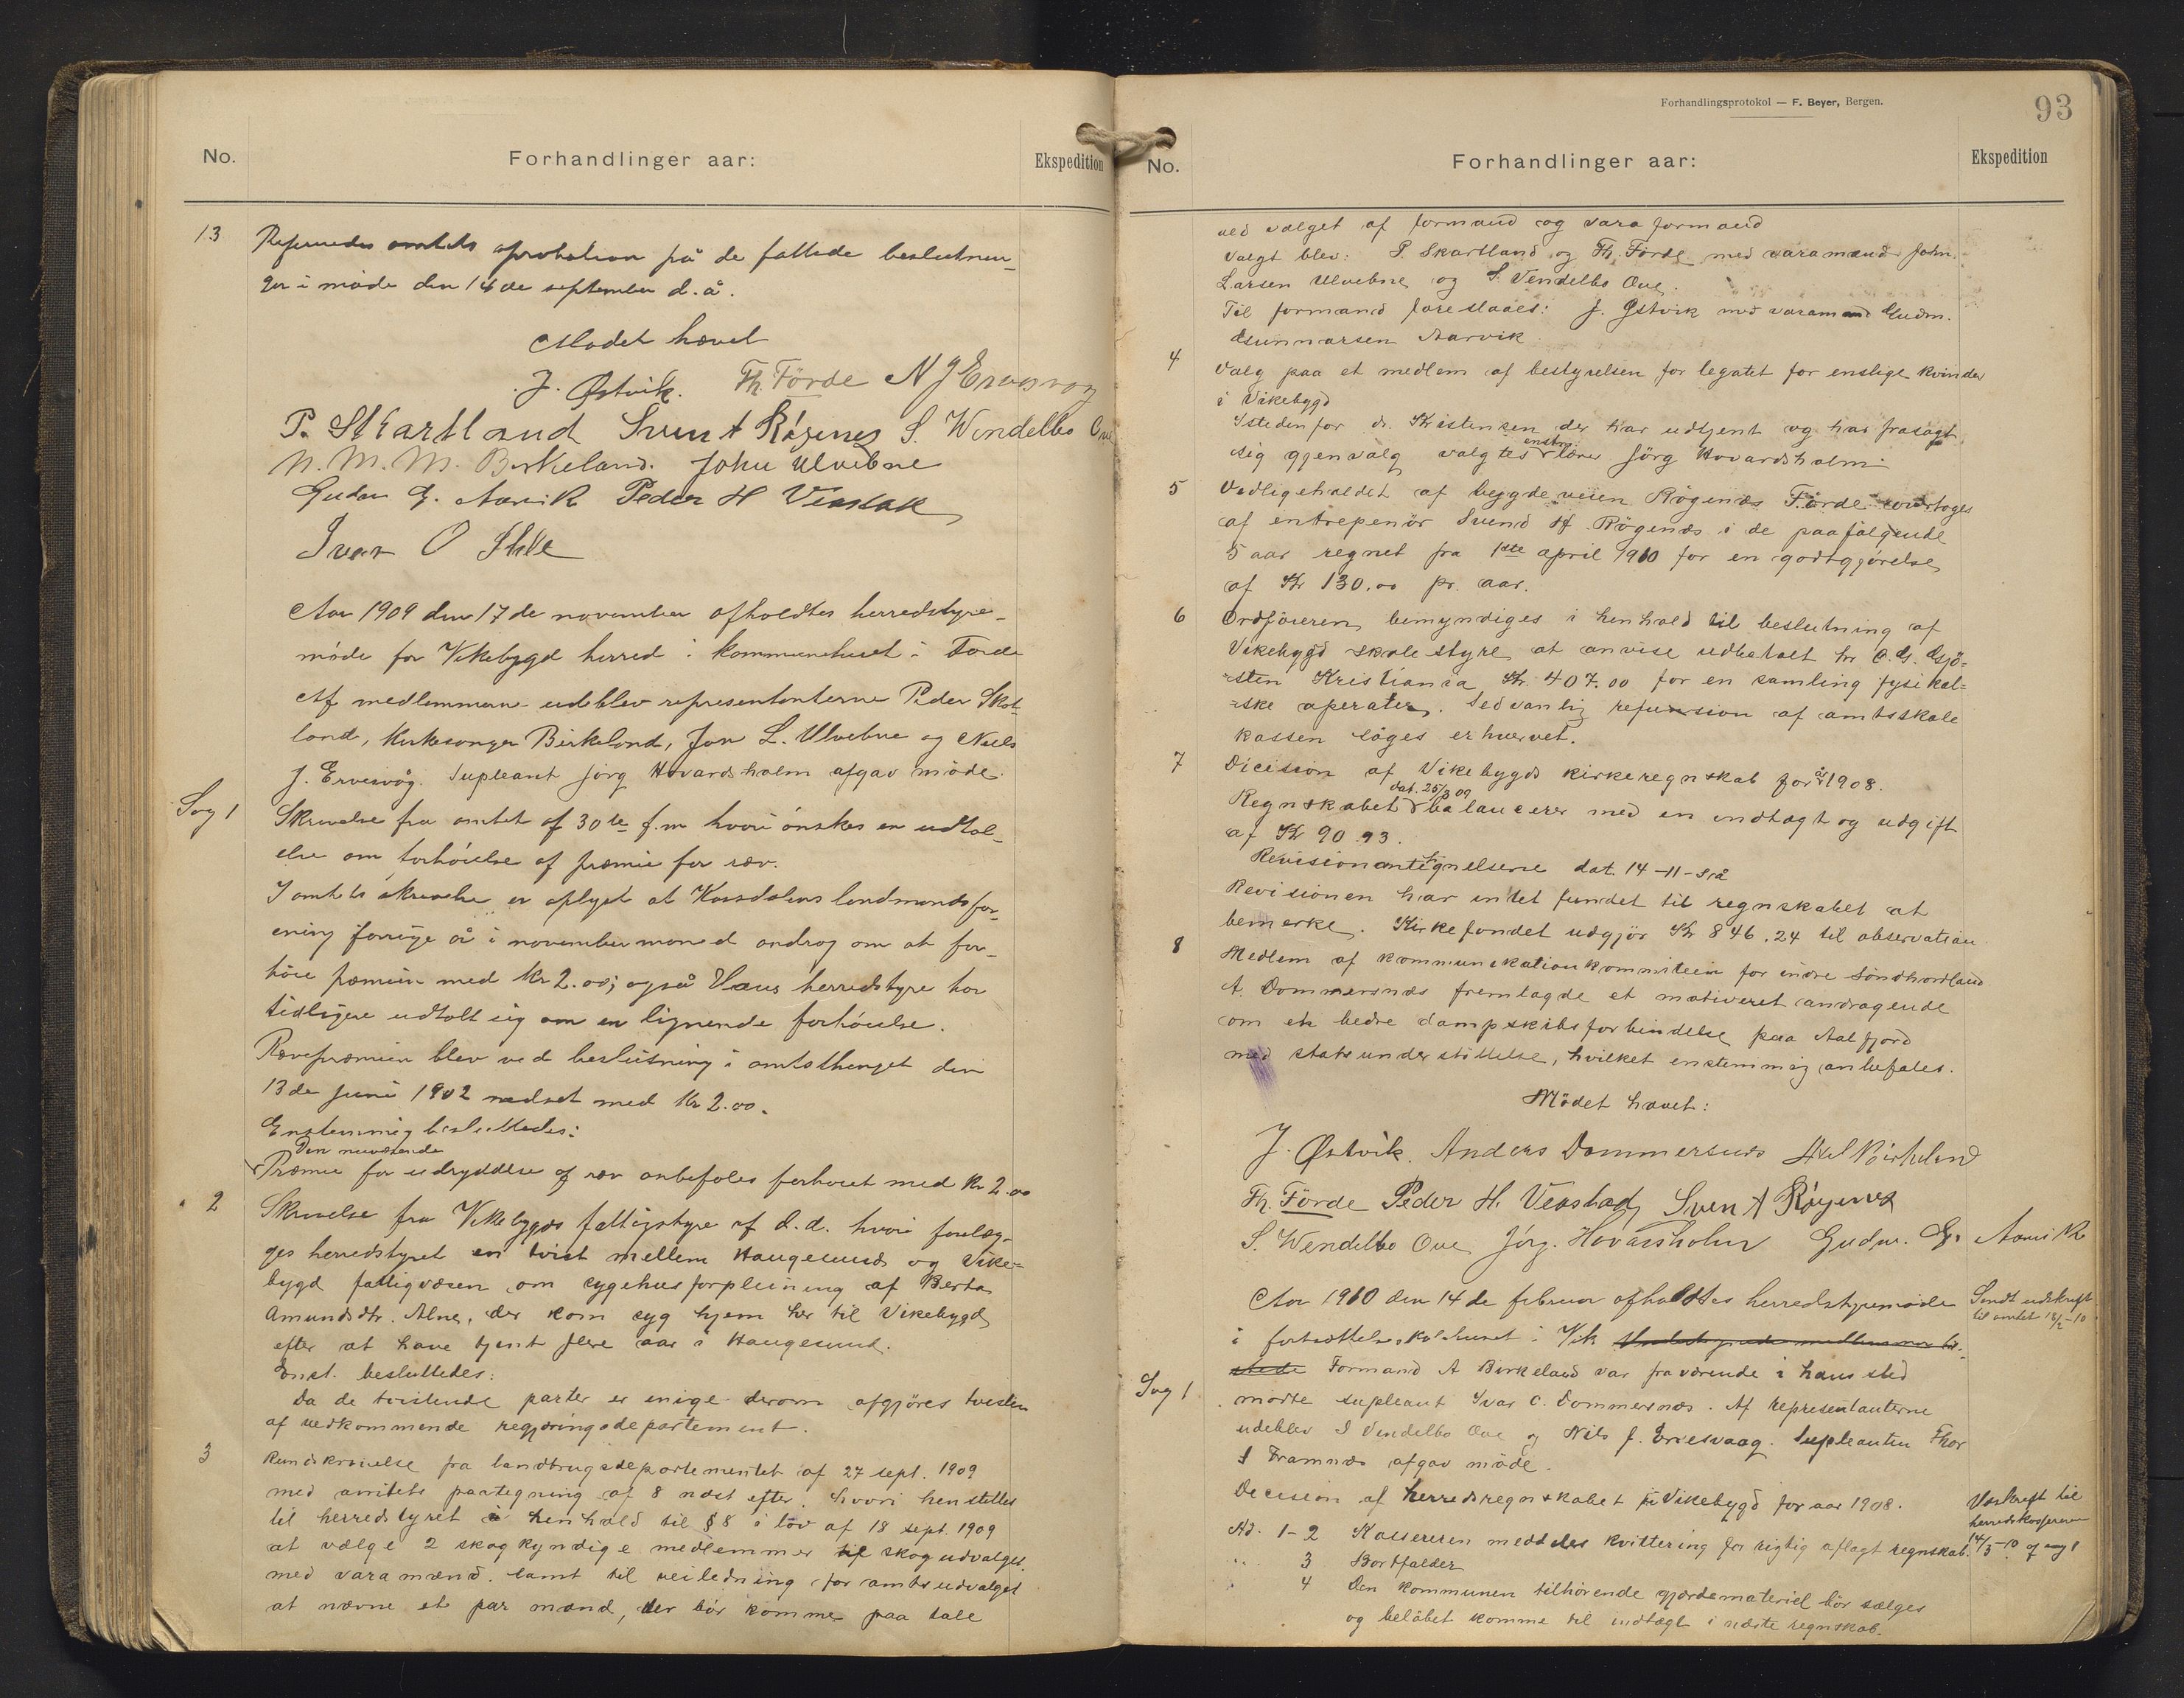 No.
Forhandlinger aar:
Ekspedition
13
Refereredes amtets aprobation på de fattede beslutnin-
ger i møde den 14de september d.å.
Mødet hævet
J. Østvik. Th. Förde N J Ervesvåg
P. Skartland Svend A Røgenes S. Wendelbo Ove
N. M. M. Birkeland. John Ulvebne
Gudm G. Aarvik Peder H Veastad
Ivar O Ihle
Aar 1909 den 17de november afholdtes herredstyre-
møde for Vikebygd herred i kommunehuset i Førde
Af medlemmene udeblev representanterne Peder Skart-
land, kirkesanger Birkeland, Jon L. Ulvebne og Niels
J. Ervesvåg. Supleant Jörg Hovardsholm afgav møde.
Sag 1
Skrivelse fra amtet af 30te f.m hvori ønskes en udtal-
else om forhøielse af præmie for ræv.
I amtets skrivelse er oplyst at Vossdalens landmandsfor-
ening forrige år i november måned androg om at for-
høie præmien med kr 2.00; også Haus herredstyre har
tidligere udtalt sig om en lignende forhøielse.
Rævepræmien blev ved beslutning i amtsthinget den
13de juni 1902 nedsat med kr 2.00.
Enstemmig besluttedes:
Den nuværende
Præmie for udryddelse af ræv anbefales forhøiet med kr 2.00
2
Skrivelse fra Vikebygds fattigstyre af d.d. hvori forelæg-
ges herredstyret en tvist mellem Haugesunds og Vike-
bygd fattigvæsen om sygehusforpleining af Berta
Amundsdtr. Alne, der kom syg hjem her til Vikebygd
efter at have tjent flere aar i Haugesund.
Enst. besluttedes:
Da de tvistende parter er enige derom afgjöres tvisten
af vedkommende regjeringsdepartement.
3
Rundskrivelse fra landbrugsdepartementet af 27 sept. 1909
med amtets paategning af 8 næst efter. hvori henstilles
til herredstyret i henhold til § 8 i lov af 18 sept. 1909
at vælge 2 skogkyndige medlemmer til skogudvalget
med varamænd. Samt til veiledning for amtsudvalget
at nævne et par mænd, der bör komme paa tale
Forhandlingsprotokol — F. Beyer, Bergen.
93
No.
Forhandlinger aar:
Ekspedition
ved valget af formand og varaformand
Valgt blev: P. Skartland og Th. Förde med varamænd John
Larsen Ulvebne og S. Vendelbo Ove.
Til formand foreslaaes: J. Østvik med varamand Gudm.
Gunnarsen Aarvik
4
Valg paa et medlem af bestyrelsen for legatet for enslige kvinder
i Vikebygd
Istedenfor dr. Kristensen der har udtjent og har frasagt
sig gjenvalg valgtes enst. lærer Jörg Hovardsholm
5
Vedligeholdet af bygdeveien Rögenæs Förde overtoges
af entrepenör Svend A. Rögenæs i de paafölgende
5 aar regnet fra 1ste april 1910 for en godtgjörelse
af Kr 130.00 pr. aar.
6
Ordföreren bemyndiges i henhold til beslutning af
Vikebygd skolestyre at anvise udbetalt hr C. G. Gjö-
sten Kristiania Kr. 407.00 for en samling fysikal-
ske aperater. Sedvanlig refusion af amtsskole
kassen söges erhvervet.
7
Dicision af Vikebygds kirkeregnskab for år 1908.
Regnskabet dat. 25/3 09 balancerer med en indtægt og udgift
af Kr 90.93.
Revisionantegnelserne dat. 14-11-då
Revisionen har intet fundet til regnskabet at
bemerke. Kirkefondet udgjör Kr 846.24 til observation
8
Medlem af kommunikationkommiteen for indre Söndhordland
A. Dommersnæs fremlagde et motiveret andragende
om en bedre dampskibsforbindelse paa Aalfjord
med statsunderstöttelse, hvilket enstemmig anbefales.
Mödet hævet:
J. Østvik. Anders Dommersnes Axel Birkeland
Th. Förde Peder H. Veastad Sven A Røgenes
S. Wendelbo Ove Jörg. Hovarsholm Gudm. G. Aarvik
Aar 1910 den 14de februar afholdtes herredstyremøde
i fortsættelseskolehuset i Vik
Formand A Birkeland var fraværende i hans sted
mødte supleant Ivar C. Dommersnæs. Af representanterne
udeblev S Vendelbo Ove og Nils J. Ervesvaag. Supleanten Thor
S Framnæs afgav möde.
Sendt udskrift
til amtet 18/2-10
Sag 1
Decision af herredsregnskabet for Vikebygd for aar 1908.
Ad. 1-2 Kassereren meddeles kvittering for rigtig aflagt regnskab.
" 3 Bortfalder
" 4 Den kommunen tilhörende gjerdemateriel bör sælges
og belöbet komme til indtægt i næste regnskab.
Utskrift til
herredskassereren
14/3-10 af sag 1